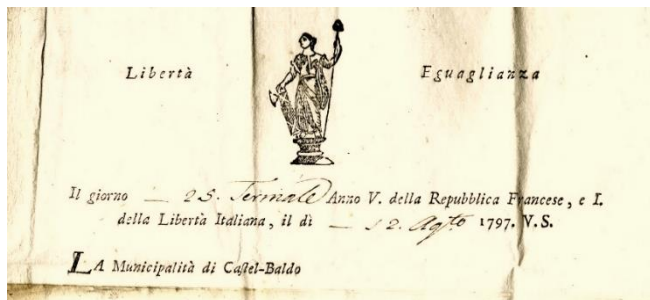 Libertà Eguaglianza
Il giorno — 25. Termale Anno V. della Repubblica Francese, e I.
della Libertà Italiana, il dì — 12. Agto 1797. V.S.
LA Municipalità di Castel-Baldo